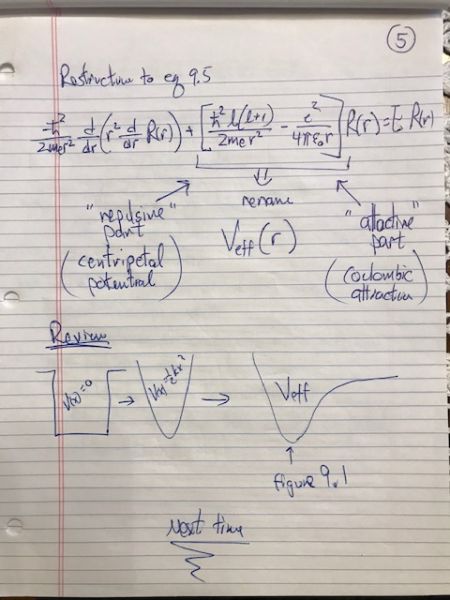 5
Restructure to eq 9.5
-ħ²/2mₑr² d/dr (r² d/dr R(r)) + [ħ² l(l+1)/2mₑr² - e²/4πε₀r] R(r) = E R(r)
"repulsive" part
(centripetal potential)
⇓ rename
Veff(r)
"attactive" part
(coulombic attraction)
Review
V(x)=0 → V(x)=½kx² → Veff
↑
figure 9.1
Next time